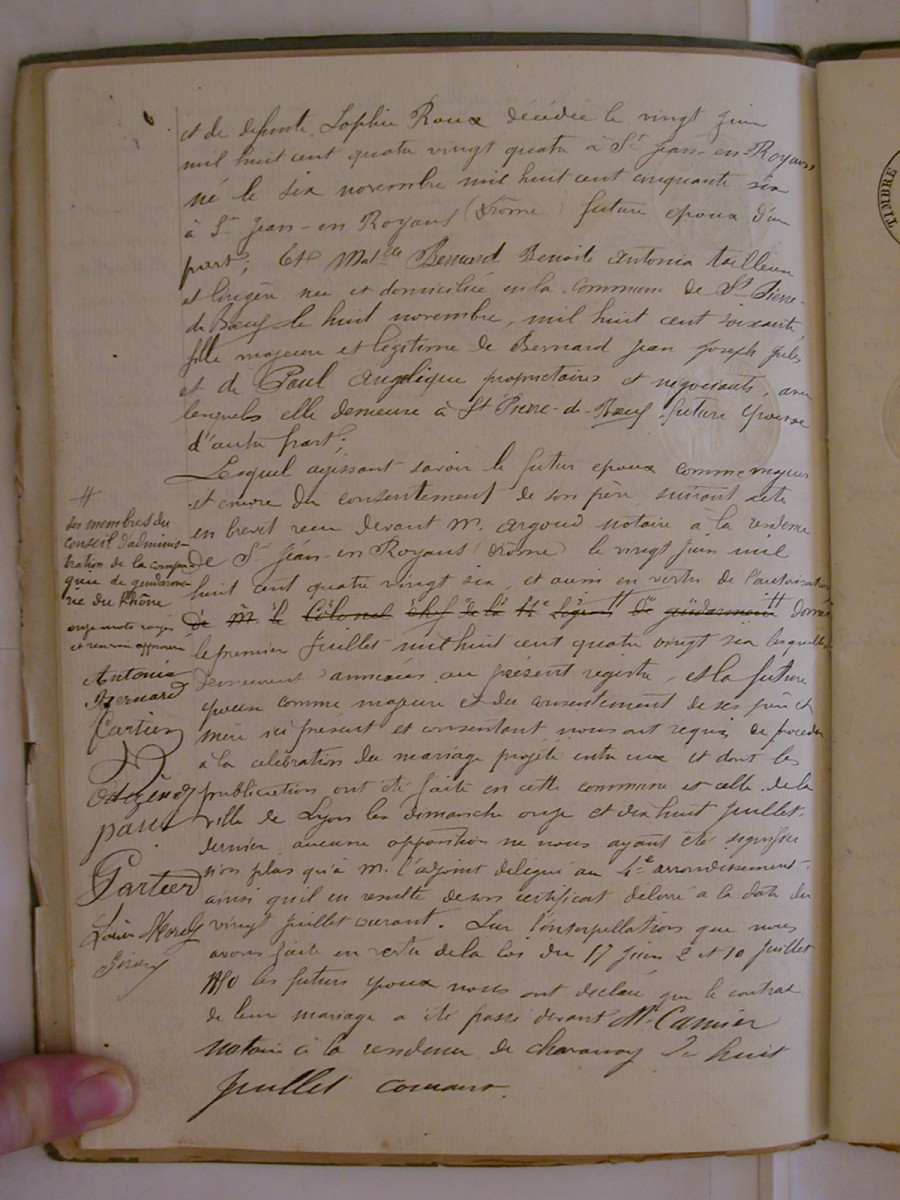 et de defunte Sophie Roux décédée le vingt juin
mil huit cent quatre vingt quatre à St Jean-en-Royans
né le six novembre mil huit cent cinquante six
à St Jean-en Royans (Drôme) futur epoux d'un
part; Et Melle Bernard Benoite Antonia tailleuse
et lingère née et domiciliée en la commune de St Pierre-
de Bœuf le huit novembre, mil huit cent soixante
fille majeure et légitime de Bernard Jean Joseph Jules
et de Paul Angélique propriétaires et négociants, avec
lesquels elle demeure à St Pierre-de-Bœuf future épouse
d'autre part;
Lesquel agissant savoir le futur epoux comme majeur
et encore du consentement de son père suivant acte
en brevet reçu devant M. Argoud notaire à la residence
de St Jean-en Royans (Drôme) le vingt juin mil
huit cent quatre vingt six, et aussi en vertu de l'autorisation
de M. le Colonel chef de la 14e légion de gendarmerie # donnée
le premier Juillet mil huit cent quatre vingt six lesquelles
demeurent annexées au présent registre, et la future
épouse comme majeure et du consentement de ses père et
mère ici présent et consentant nous ont requis de procéder
à la célébration du mariage projeté entre eux et dont les
publications ont été faite en cette commune et celle de la
ville de Lyon les dimanche onze et dix huit Juillet
dernier aucune opposition ne nous ayant été signifiée
non plus qu'à M. l'adjoint délégué au 4e arrondissement
ainsi qu'il en resulte de son certificat délivré à la date du
vingt Juillet courant. Sur l'interpellations que nous
avons faite en vertu de la loi du 17 juin 2 et 10 Juillet
1850 les futurs époux nous ont déclaré que le contrat
de leur mariage a été passé devant Mr
notaire à la residence de Chavanay le huit
Juillet courant.
#
des membres du
conseil d'adminis-
tration de la compa-
gnie de gendarme-
rie du Rhône
onze mots rayés
et renvoi approuvé
Antonia
Bernard
Partier
paul
Partier
Louis